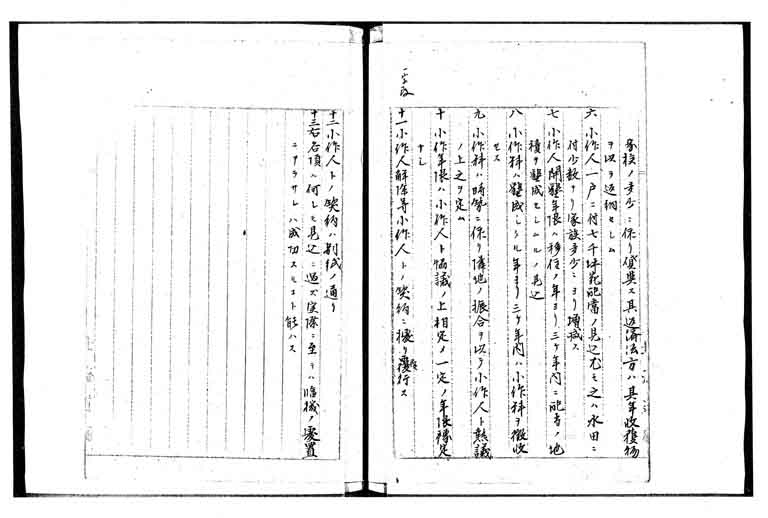 家族ノ多少ニ依リ貸与ス其返済法方ハ其年収穫物
ヲ以テ返納セシム
六 小作人一戸ニ付七千坪宛配当ノ見込尤モ之ハ水田ニ
付少数ナリ家族多少ニヨリ増減ス
七 小作人開墾年限ハ移住ノ年ヨリ三ケ年内ニ配当ノ地
積ヲ墾成セシムルノ見込
八 小作料ハ墾成シタル年ヨリ三ケ年内ハ小作料ヲ徴収
セス
九 小作料ハ時勢ニ依リ隣地ノ振合ヲ以テ小作人ト熟議
ノ上之ヲ定ム
十 小作年限ハ小作人ト協議ノ上相定ノ一定ノ年限予定
ナシ
十一 小作人解除等小作人トノ契約ニ拠リ履行ス
十二 小作人トノ契約ハ別紙ノ通リ
十三 右各項ハ何レモ見込ニ過ス実際ニ至テハ臨機ノ処置
ニアラサレハ成功スルコト能ハス